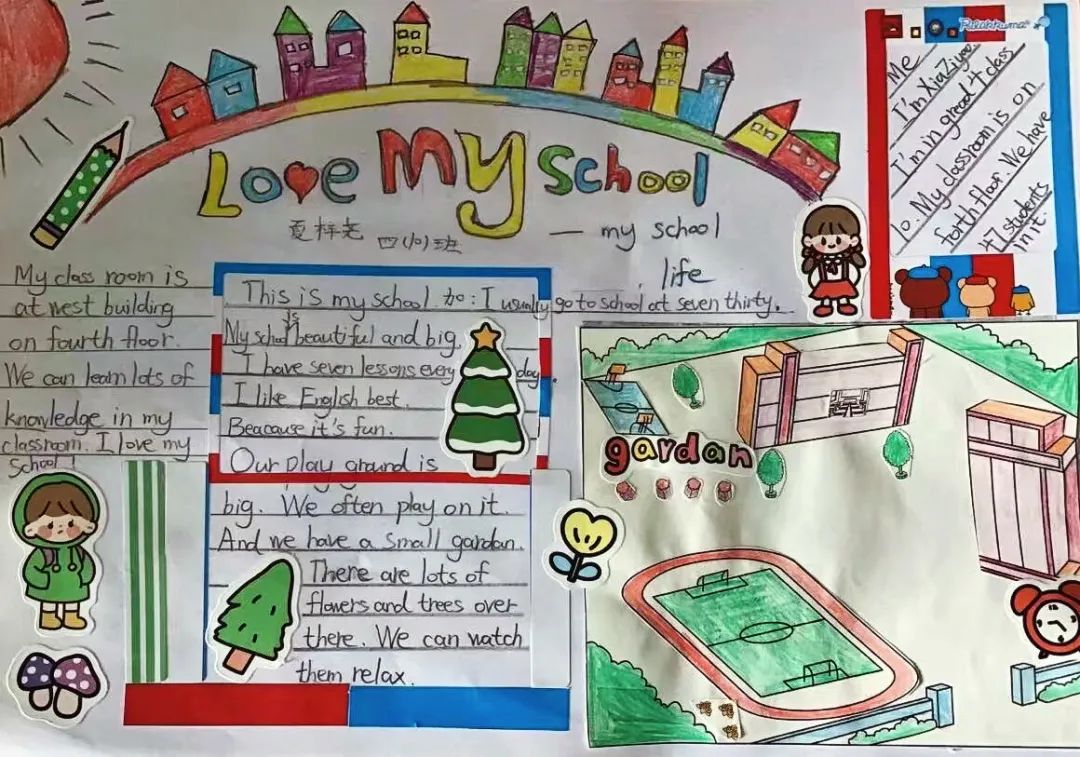 Love My School
夏梓尧 四(10)班
— my school
life
Rilakkuma
Me
I'm XiaZiyao
I'm in gread 4 class
10. My classroom is on
forth floor. We have
47 students
in it.
My class room is
at west building
on fourth floor.
We can learn lots of
knowledge in my
classroom. I love my
school!
This is my school. 加: I usually go to school at seven thirty.
My school is beautiful and big.
I have seven lessons every day.
I like English best.
Beacause it's fun.
Our play ground is
big. We often play on it.
And we have a small gardan.
There are lots of
flowers and trees over
there. We can watch
them relax.
gardan